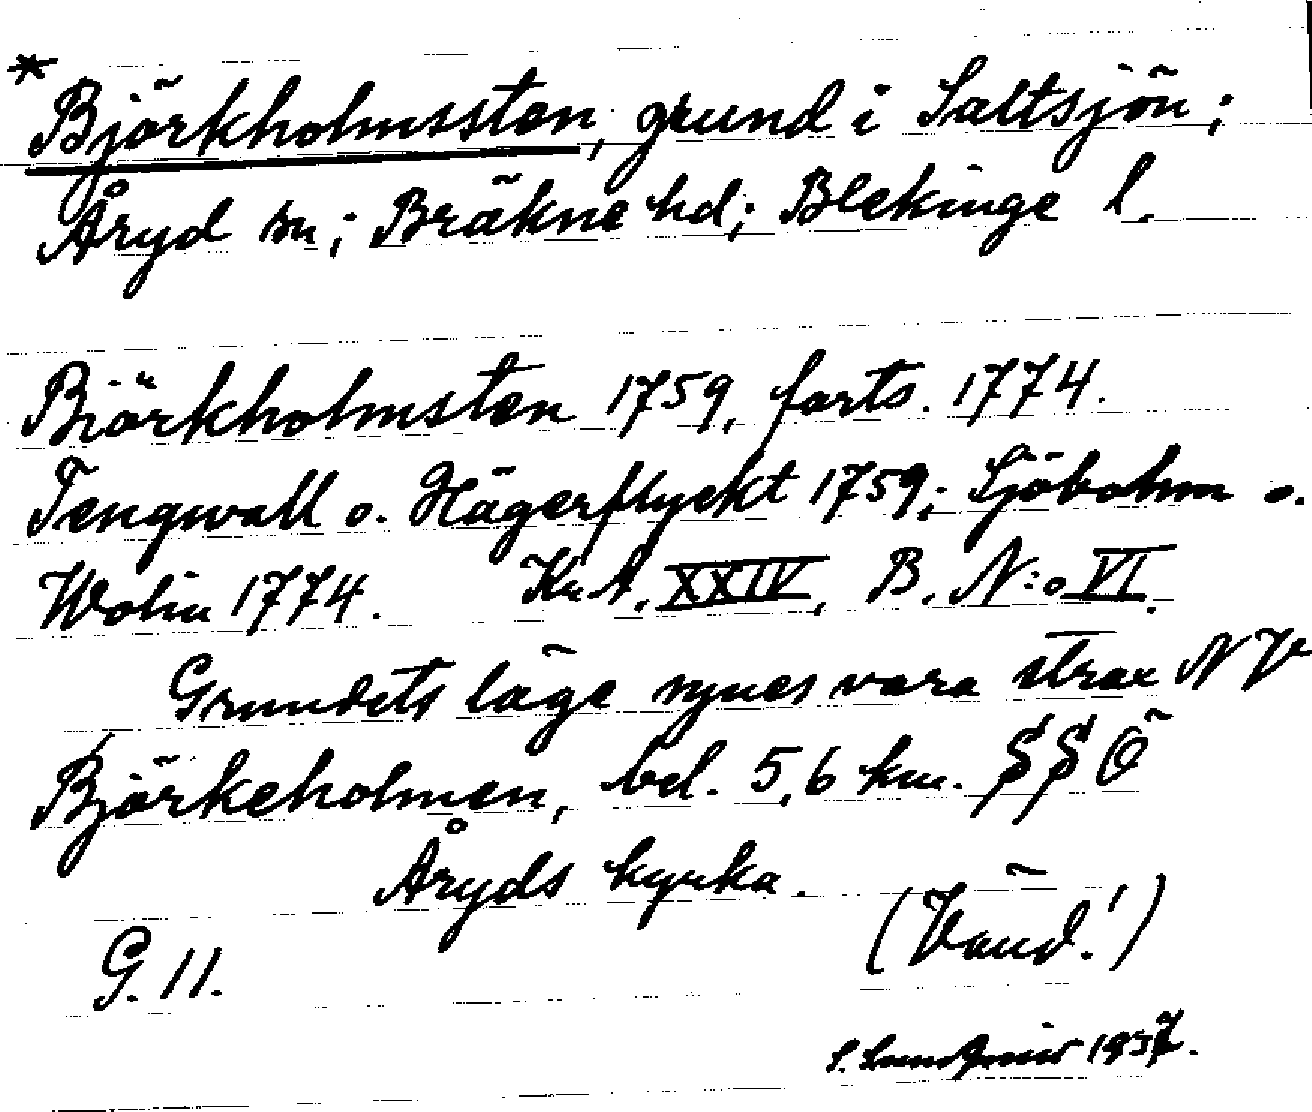 * Björkholmssten, grund i Saltsjön;
Åryd sn; Bräkne hd; Blekinge l.
Björkholmsten 1759, forts. 1774.
Tengwall o. Hägerflyckt 1759; Sjöbohm o.
Wolin 1774. Kr. A. XXIV, B. N:o VI.
Grundets läge synes vara strax NV
Björkeholmen, bel. 5,6 km. SSÖ
Åryds kyrka.
(Vänd!)
G. 11.
S. 1937.